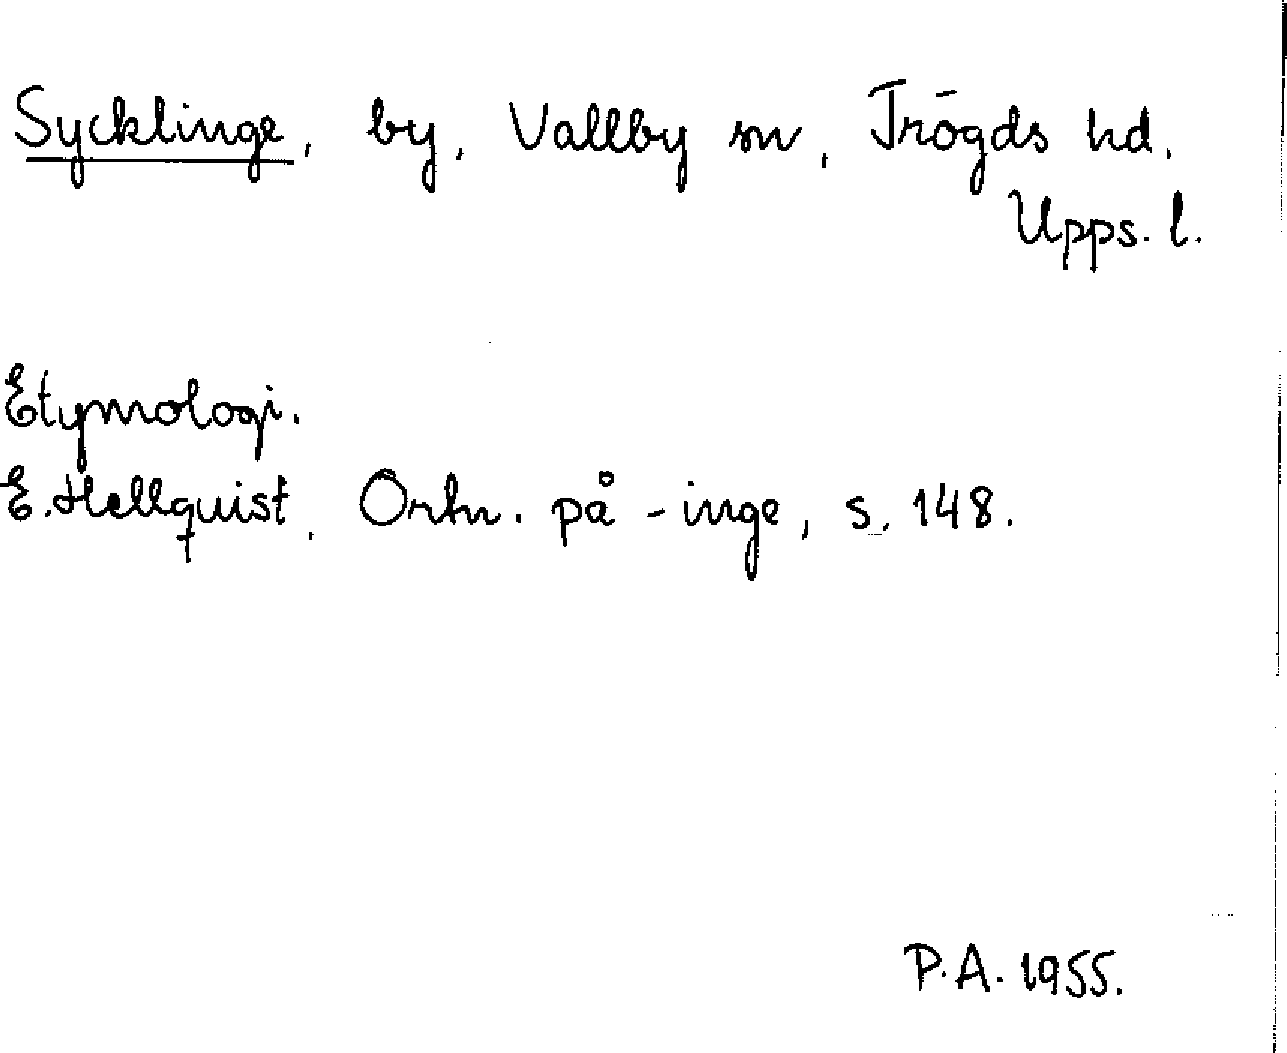 Sycklinge, by, Vallby sn, Trögds hd.
Upps. l.
Etymologi.
E. Hellquist, Ortn. på -inge, s. 148.
P.A. 1955.